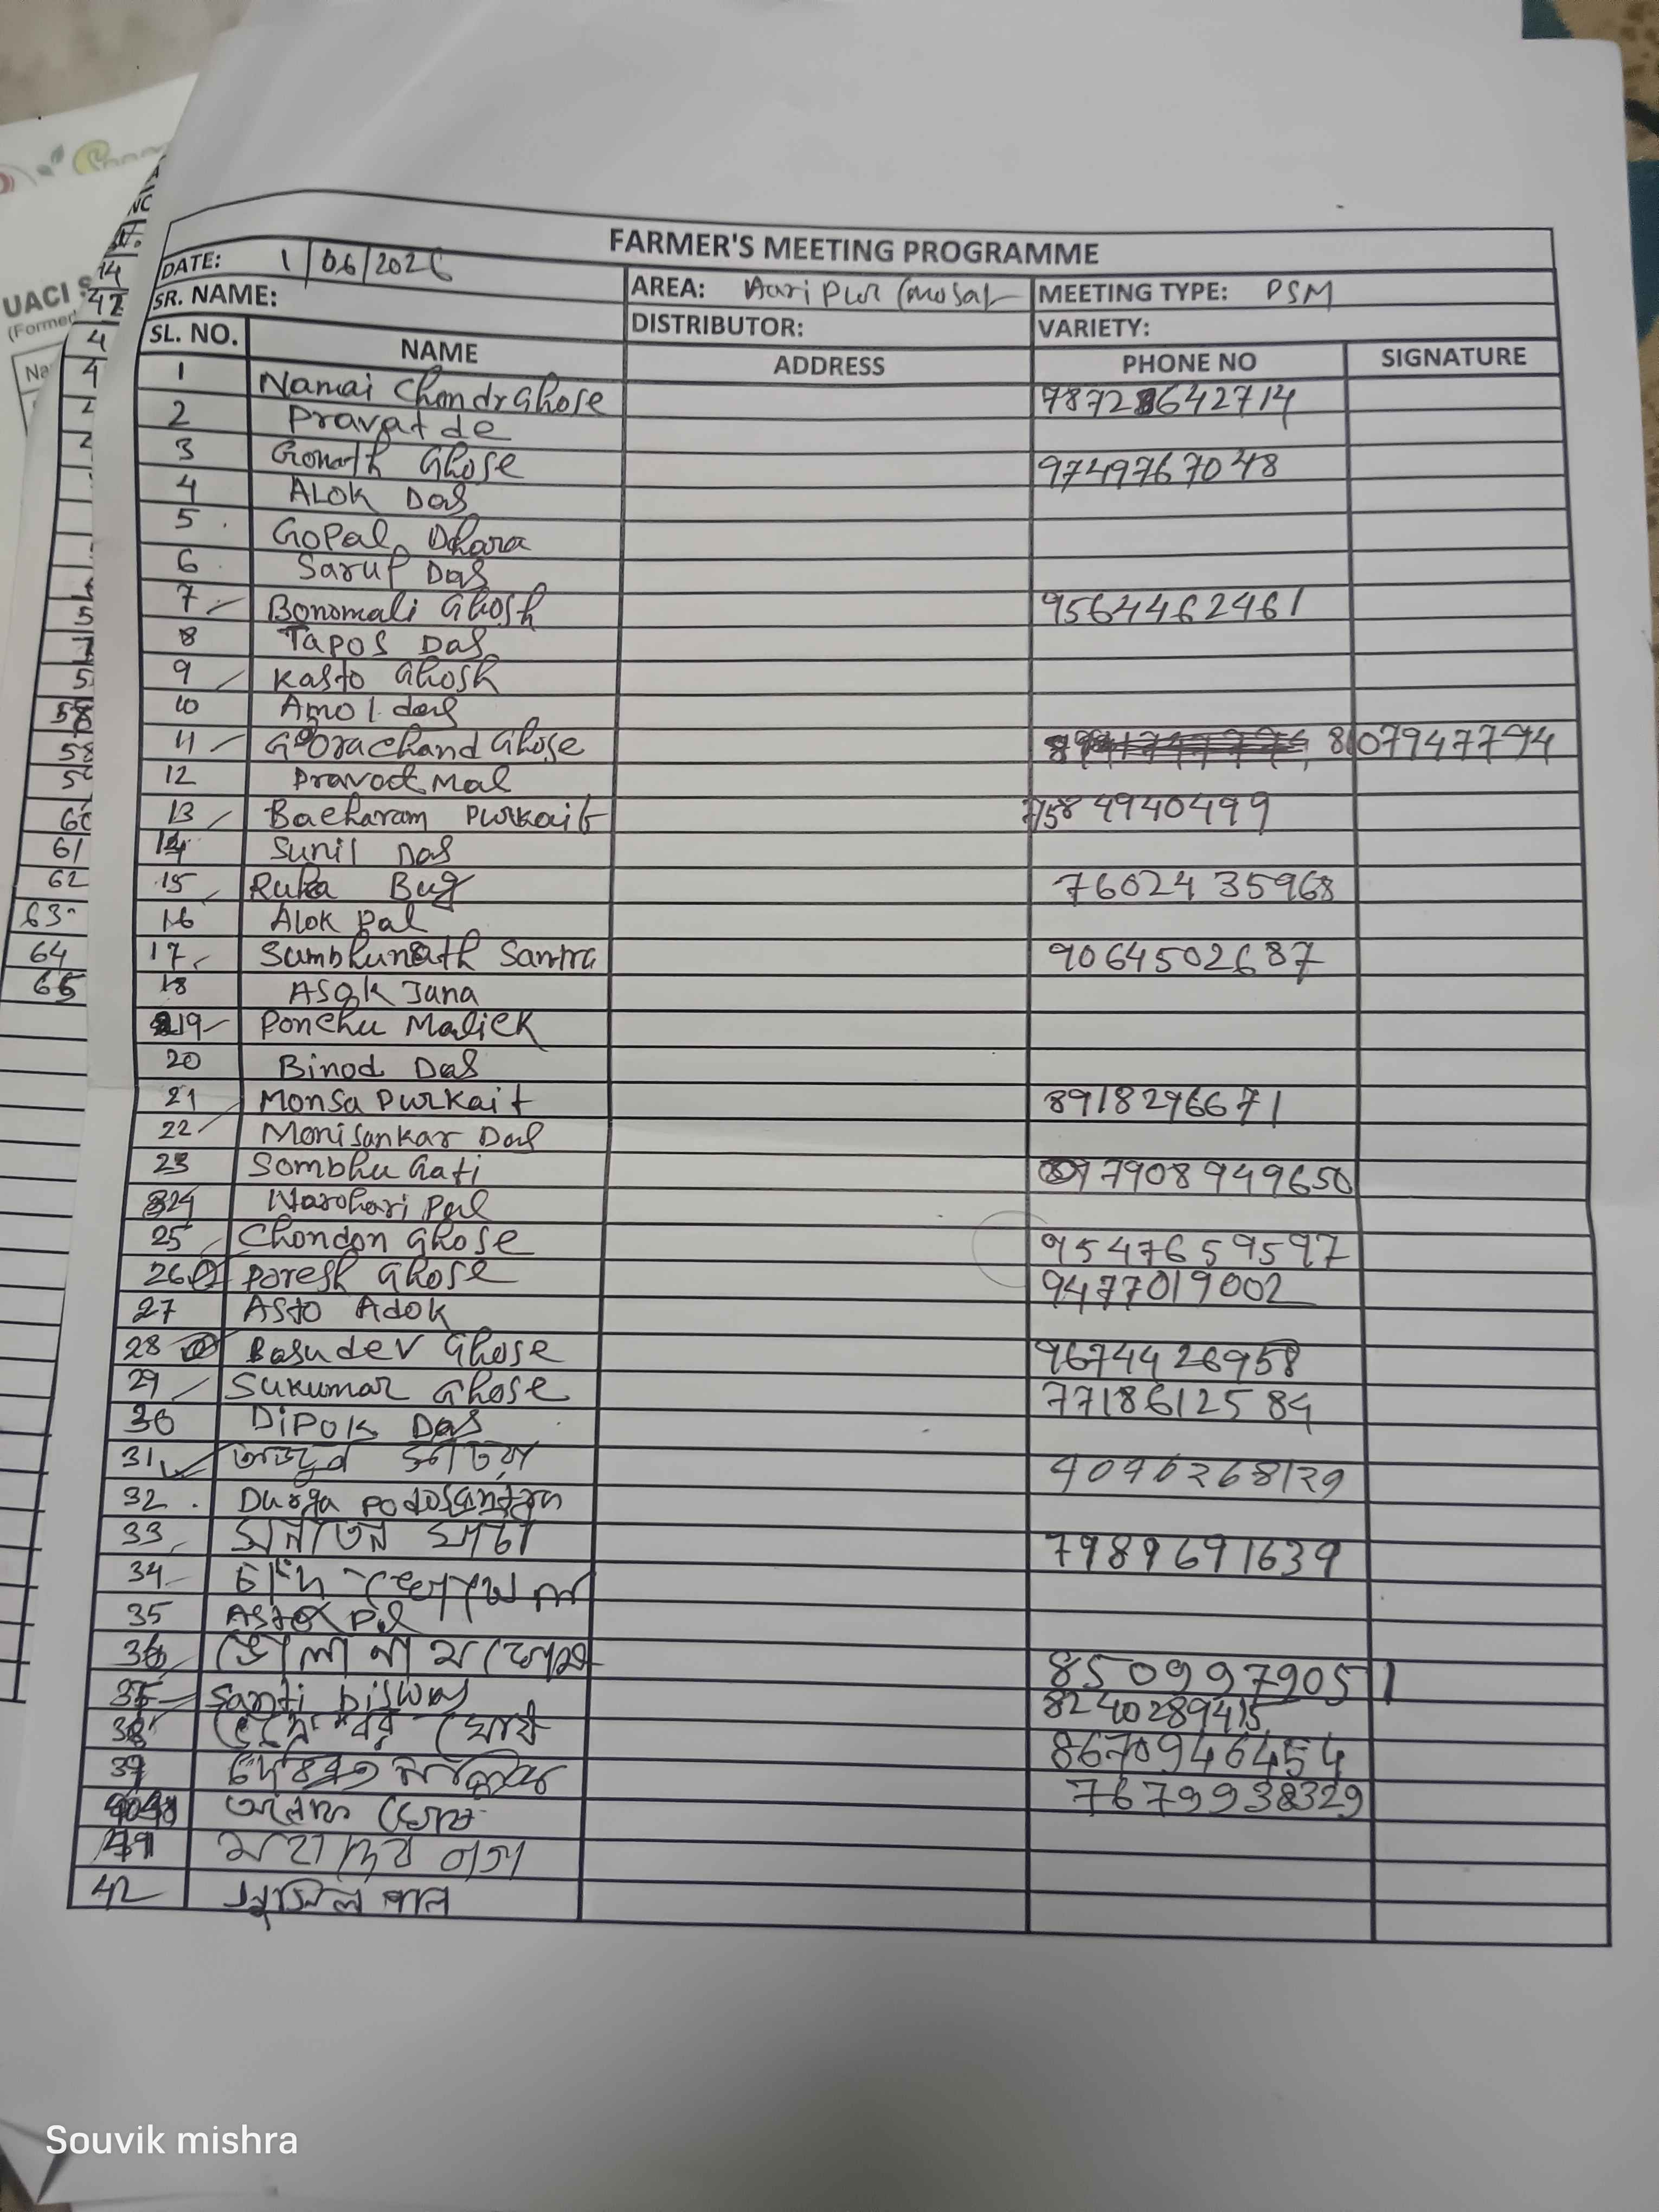 FARMER'S MEETING PROGRAMME
DATE: 1/06/2026
AREA: Haripur (mosat
MEETING TYPE: PSM
SR. NAME:
DISTRIBUTOR:
VARIETY:
SL. NO. NAME ADDRESS PHONE NO SIGNATURE
1 Namai Chandra Ghose 78728642714
2 Pravat de
3 Gonath Ghose 9749767048
4 ALOK Das
5 GOPal Dhara
6 Sarup Das
7 Bonomali Ghosh 9564462461
8 Tapos Das
9 Kasto Ghosh
10 Amol das
11 Gorachand Ghose 8107947794
12 Pravat Mal
13 Becharam Purkait 7584940499
14 Sunil Das
15 Bug 7602435968
16 Alok Pal
17 Sambhunath Santra 9064502687
18 Asok Jana
19 Ponchu Malick
20 Binod Das
21 Monsa Purkait 8918296671
22 Monisankar Das
23 Sombhu Gati 7908949650
24 Narohari Pal
25 Chondon Ghose 9547659597
26 Poresh Ghose 9477019002
27 Asto Adok
28 Basudev Ghose 9674426958
29 Sukumar Ghose 7718612584
30 Dipok Das
31 অজুন
32 Durga
33 সনাতন 7989691639
34
35 Pal
36 ভোলা নাথ ঘোষ 8509979051
37 Santi biswas 8240289415
38 ঘোষ 8670946454
39 7679938329
40 অলোক ঘোষ
41 মহাদেব
42 সুসিল পাল
UACI
(Former
60
61
62
63
64
65
Souvik mishra